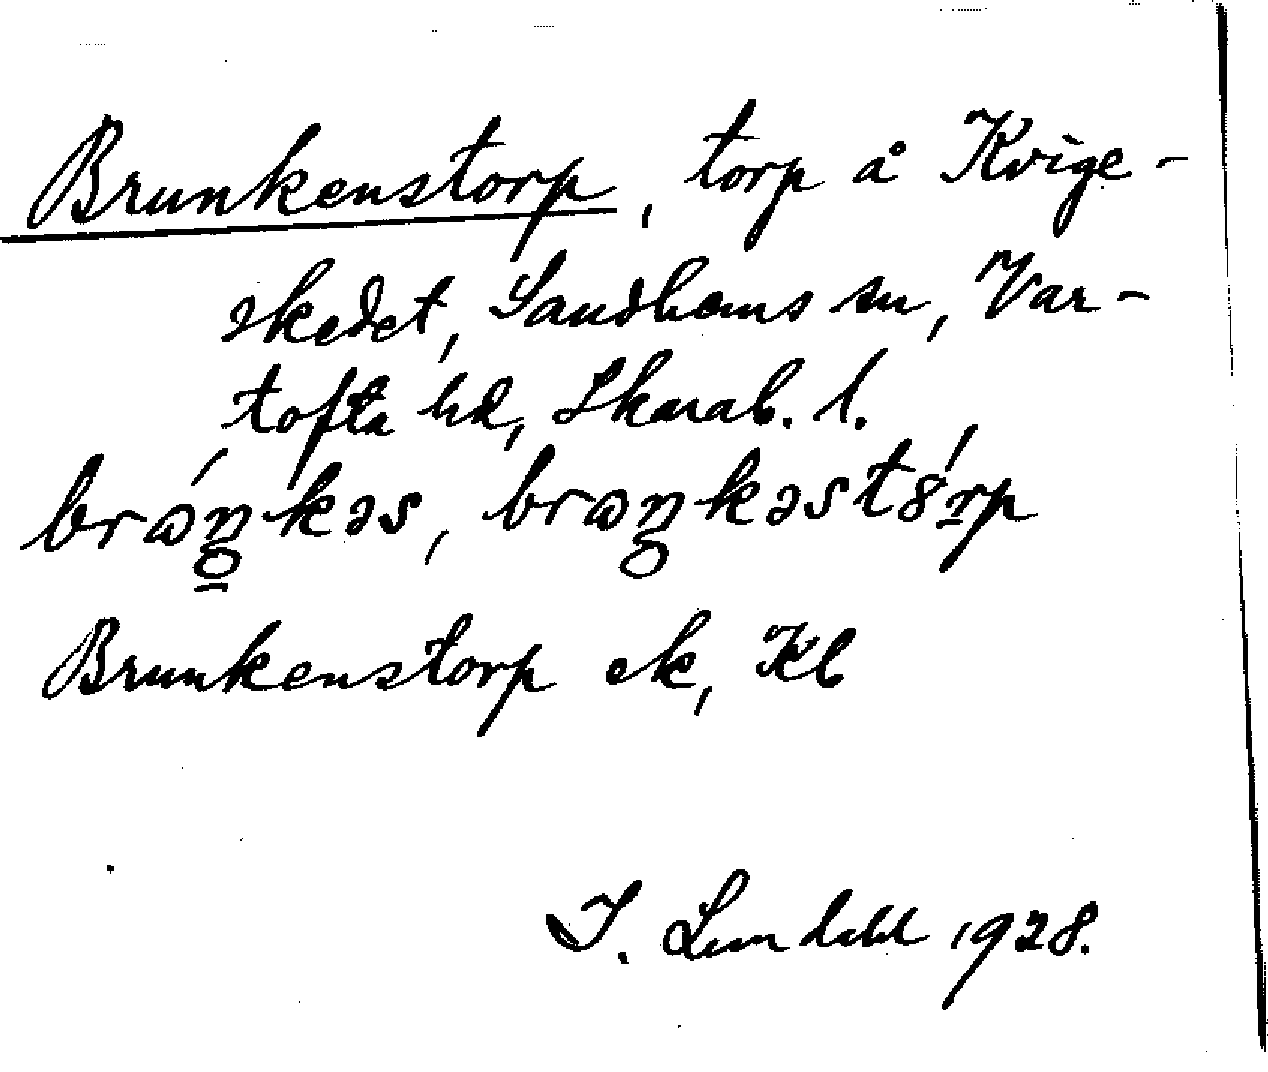 Brunkenstorp, torp å Kvige-
skedet, Sandhems sn, Var-
tofta hd, Skarab. l.
brⱺ́ŋkəs, brⱺŋkəst8́rp
Brunkenstorp ek, Kb
I. Lundahl 1928.